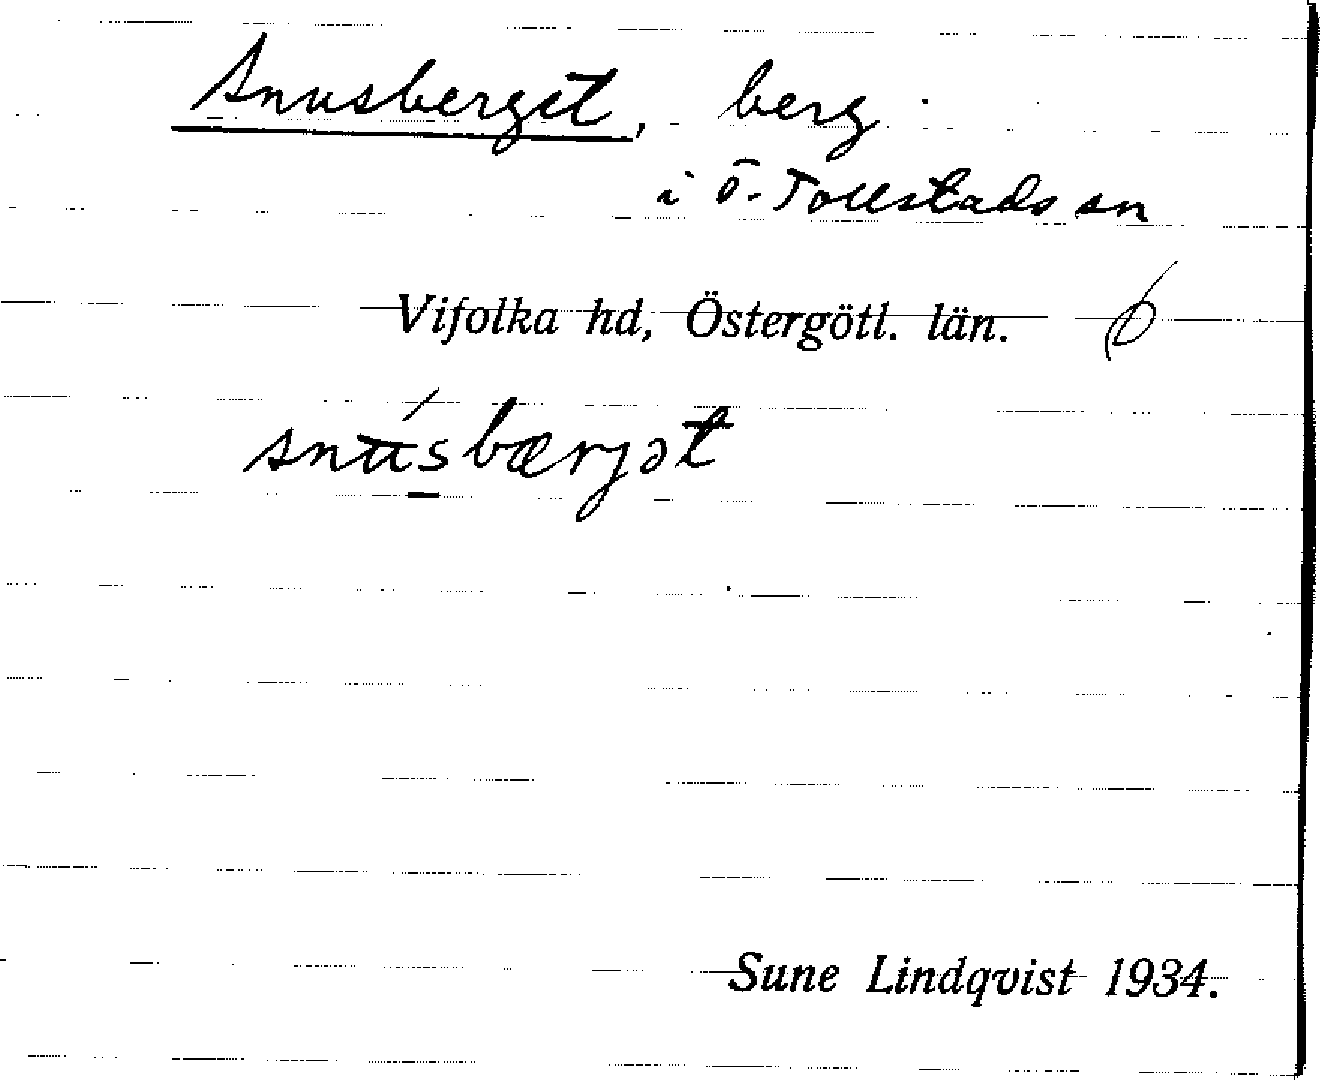 Anusberget, berg
i Ö. Tollstads sn
Vifolka hd, Östergötl. län.
Sune Lindqvist 1934.